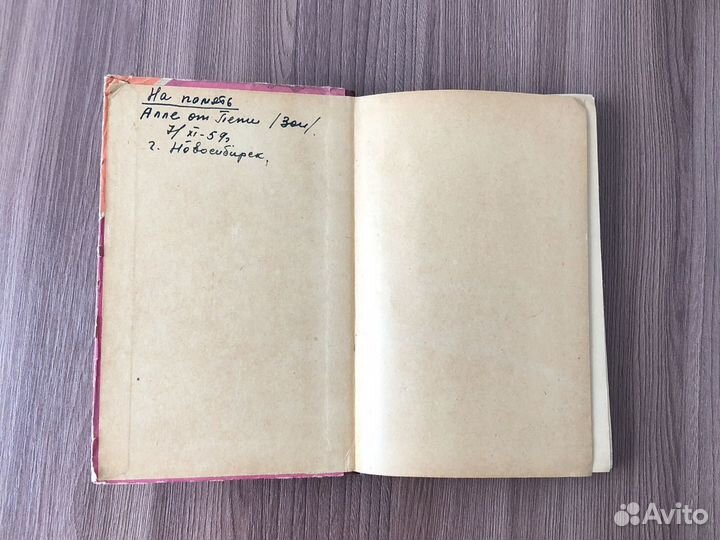 На память
Алле от Пети /Зои/.
7/XI-59г
г. Новосибирск.
Avito